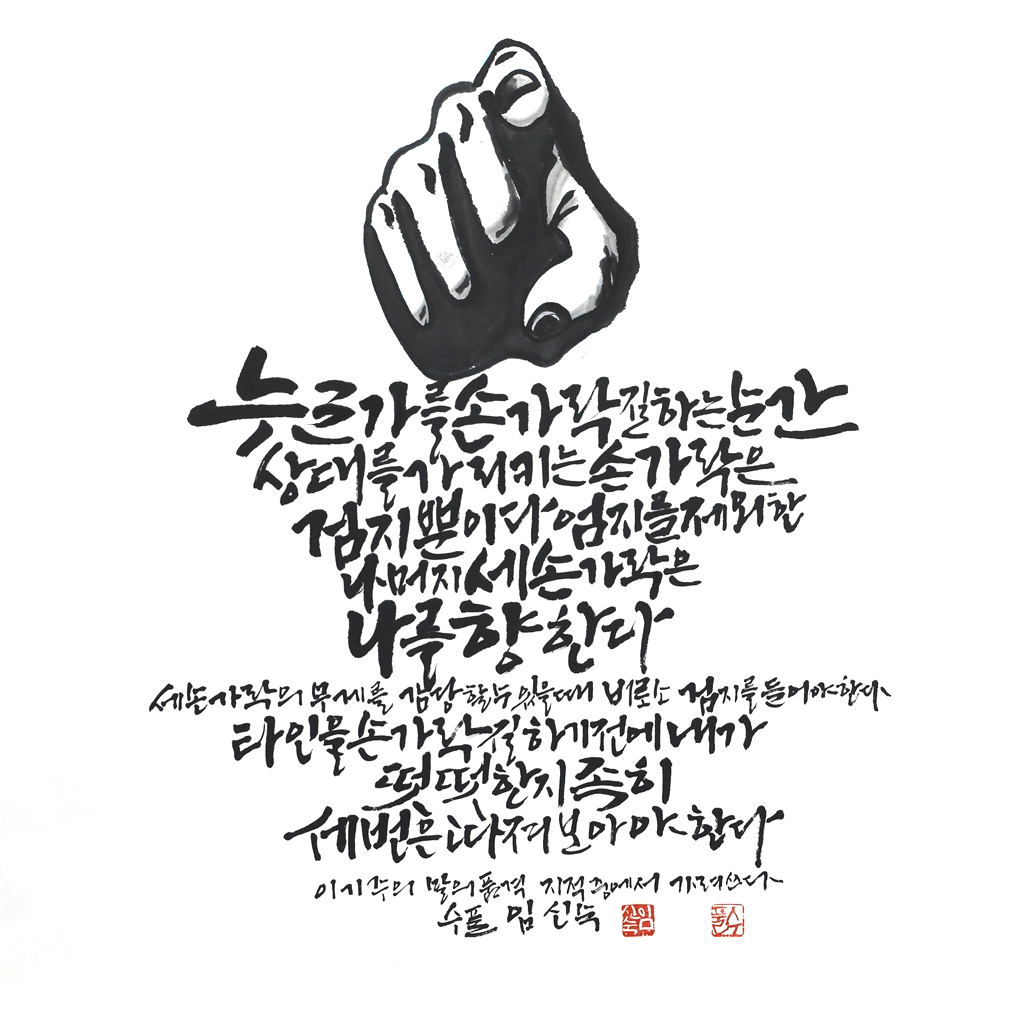 누군가를 손가락질하는 순간
상대를 가리키는 손가락은
검지뿐이다 엄지를 제외한
나머지 세 손가락은
나를 향한다
세 손가락의 무게를 감당할 수 있을 때 비로소 검지를 들어야 한다
타인을 손가락질하기 전에 내가
떳떳한지 족히
세 번은 따져보아야 한다
이기주의 말의 품격 지적 중에서 가려 쓰다
수풀 임신숙